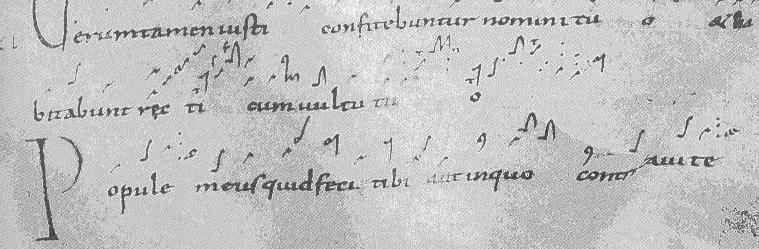 Verumtamen iusti confitebuntur nomini tu o & ha
bitabunt rec ti cum uultu tu
o
Popule meus quid feci tibi aut in quo contristaui te